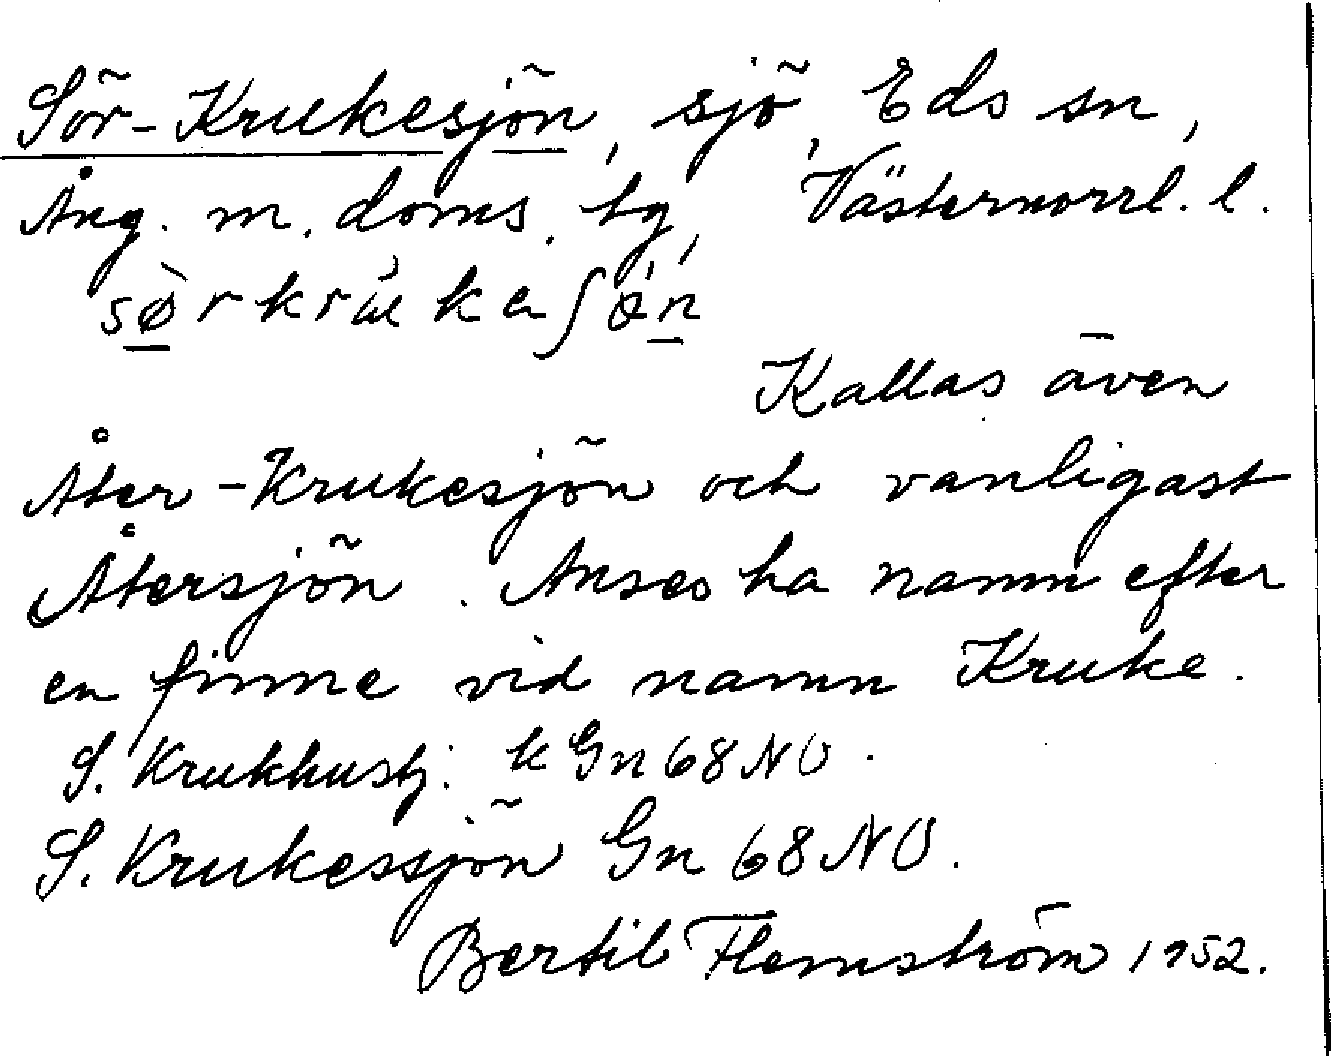 Sör-Krukesjön, sjö, Eds sn,
Ång. m. doms. tg, Västernorrl. l.
Kallas även
Åter-Krukesjön och vanligast
Återsjön. Anses ha namn efter
en finne vid namn Kruke.
S. Krukhustj: k Gn 68 NO.
S. Krukessjön Gn 68 NO.
Bertil Flemström 1952.